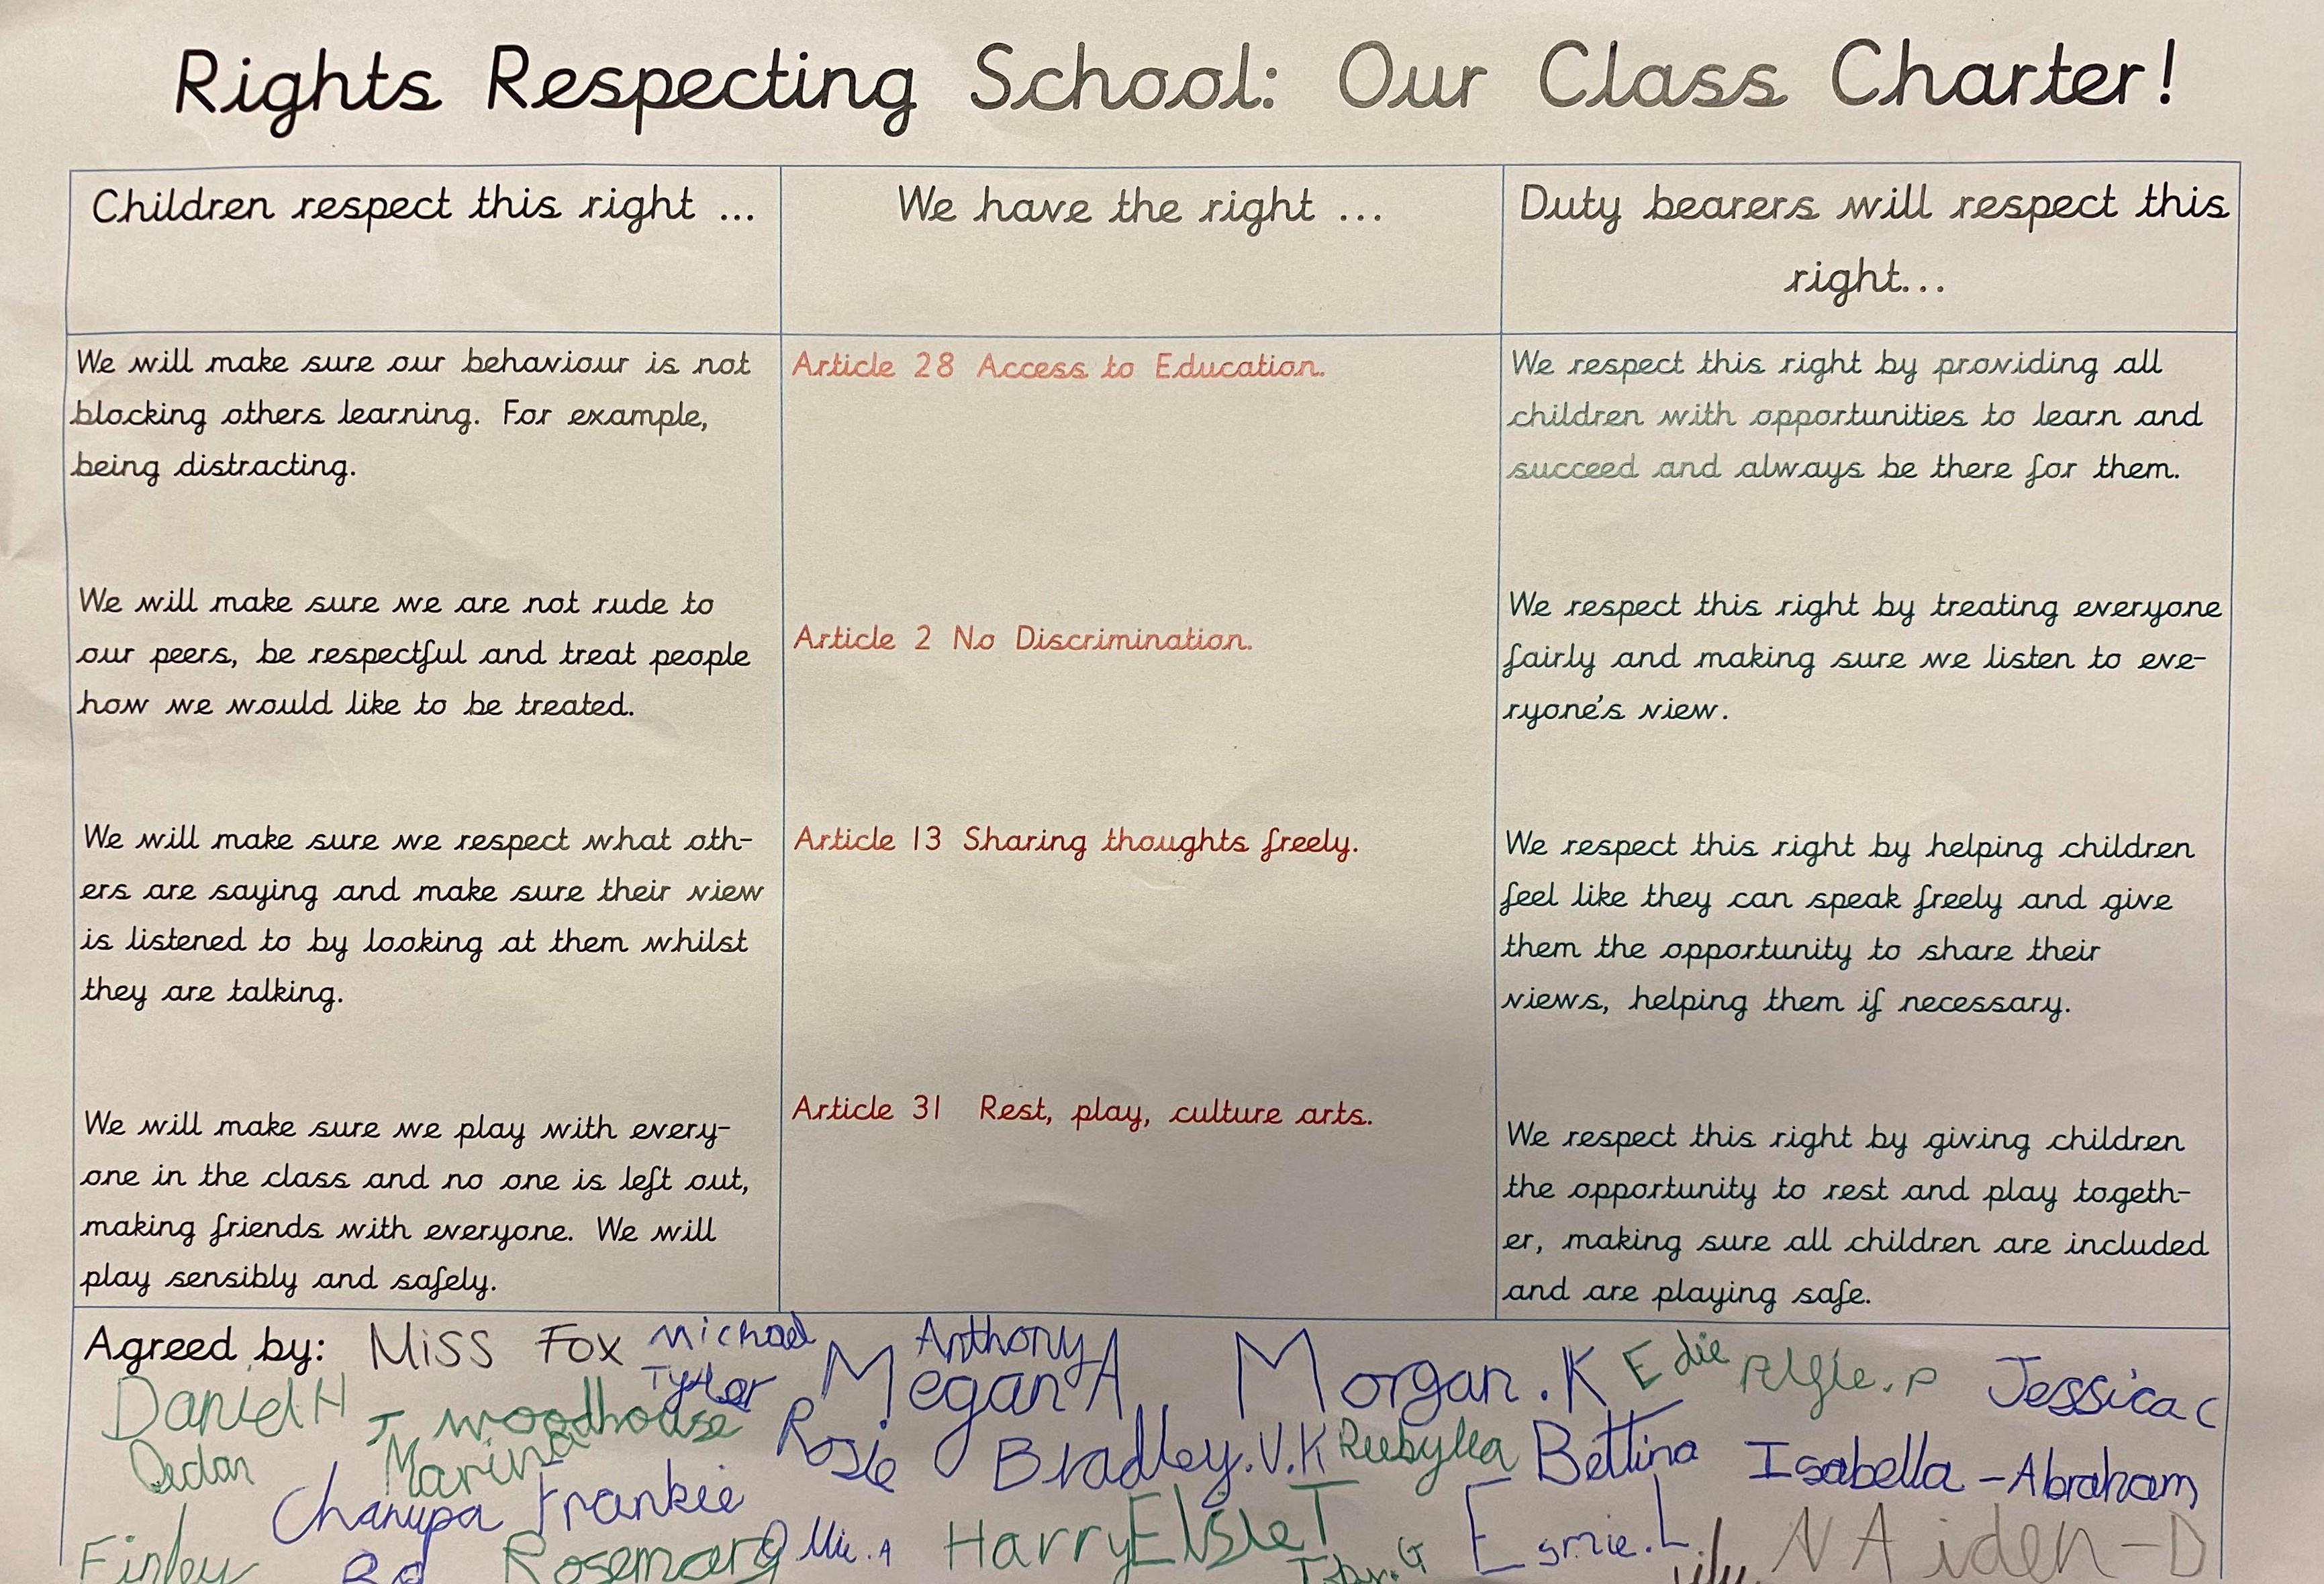 Rights Respecting School: Our Class Charter!
Children respect this right ...
We have the right ...
Duty bearers will respect this
right...
We will make sure our behaviour is not
blocking others learning. For example,
being distracting.
Article 28 Access to Education.
We respect this right by providing all
children with opportunities to learn and
succeed and always be there for them.
We will make sure we are not rude to
our peers, be respectful and treat people
how we would like to be treated.
Article 2 No Discrimination.
We respect this right by treating everyone
fairly and making sure we listen to eve-
ryone's view.
We will make sure we respect what oth-
ers are saying and make sure their view
is listened to by looking at them whilst
they are talking.
Article 13 Sharing thoughts freely.
We respect this right by helping children
feel like they can speak freely and give
them the opportunity to share their
views, helping them if necessary.
We will make sure we play with every-
one in the class and no one is left out,
making friends with everyone. We will
play sensibly and safely.
Article 31 Rest, play, culture arts.
We respect this right by giving children
the opportunity to rest and play togeth-
er, making sure all children are included
and are playing safe.
Agreed by: Miss Fox Michael Anthony Morgan.K Edie Alfie.P Jessica C
Daniel H J woodhouse Tyler Megan A
Marina Rosie Bradley.V.K Bettina Isabella-Abraham
Chanupa Frankie
Finley Rosemary Ollie.A Harry Elsie T Esmie.L Aiden-D